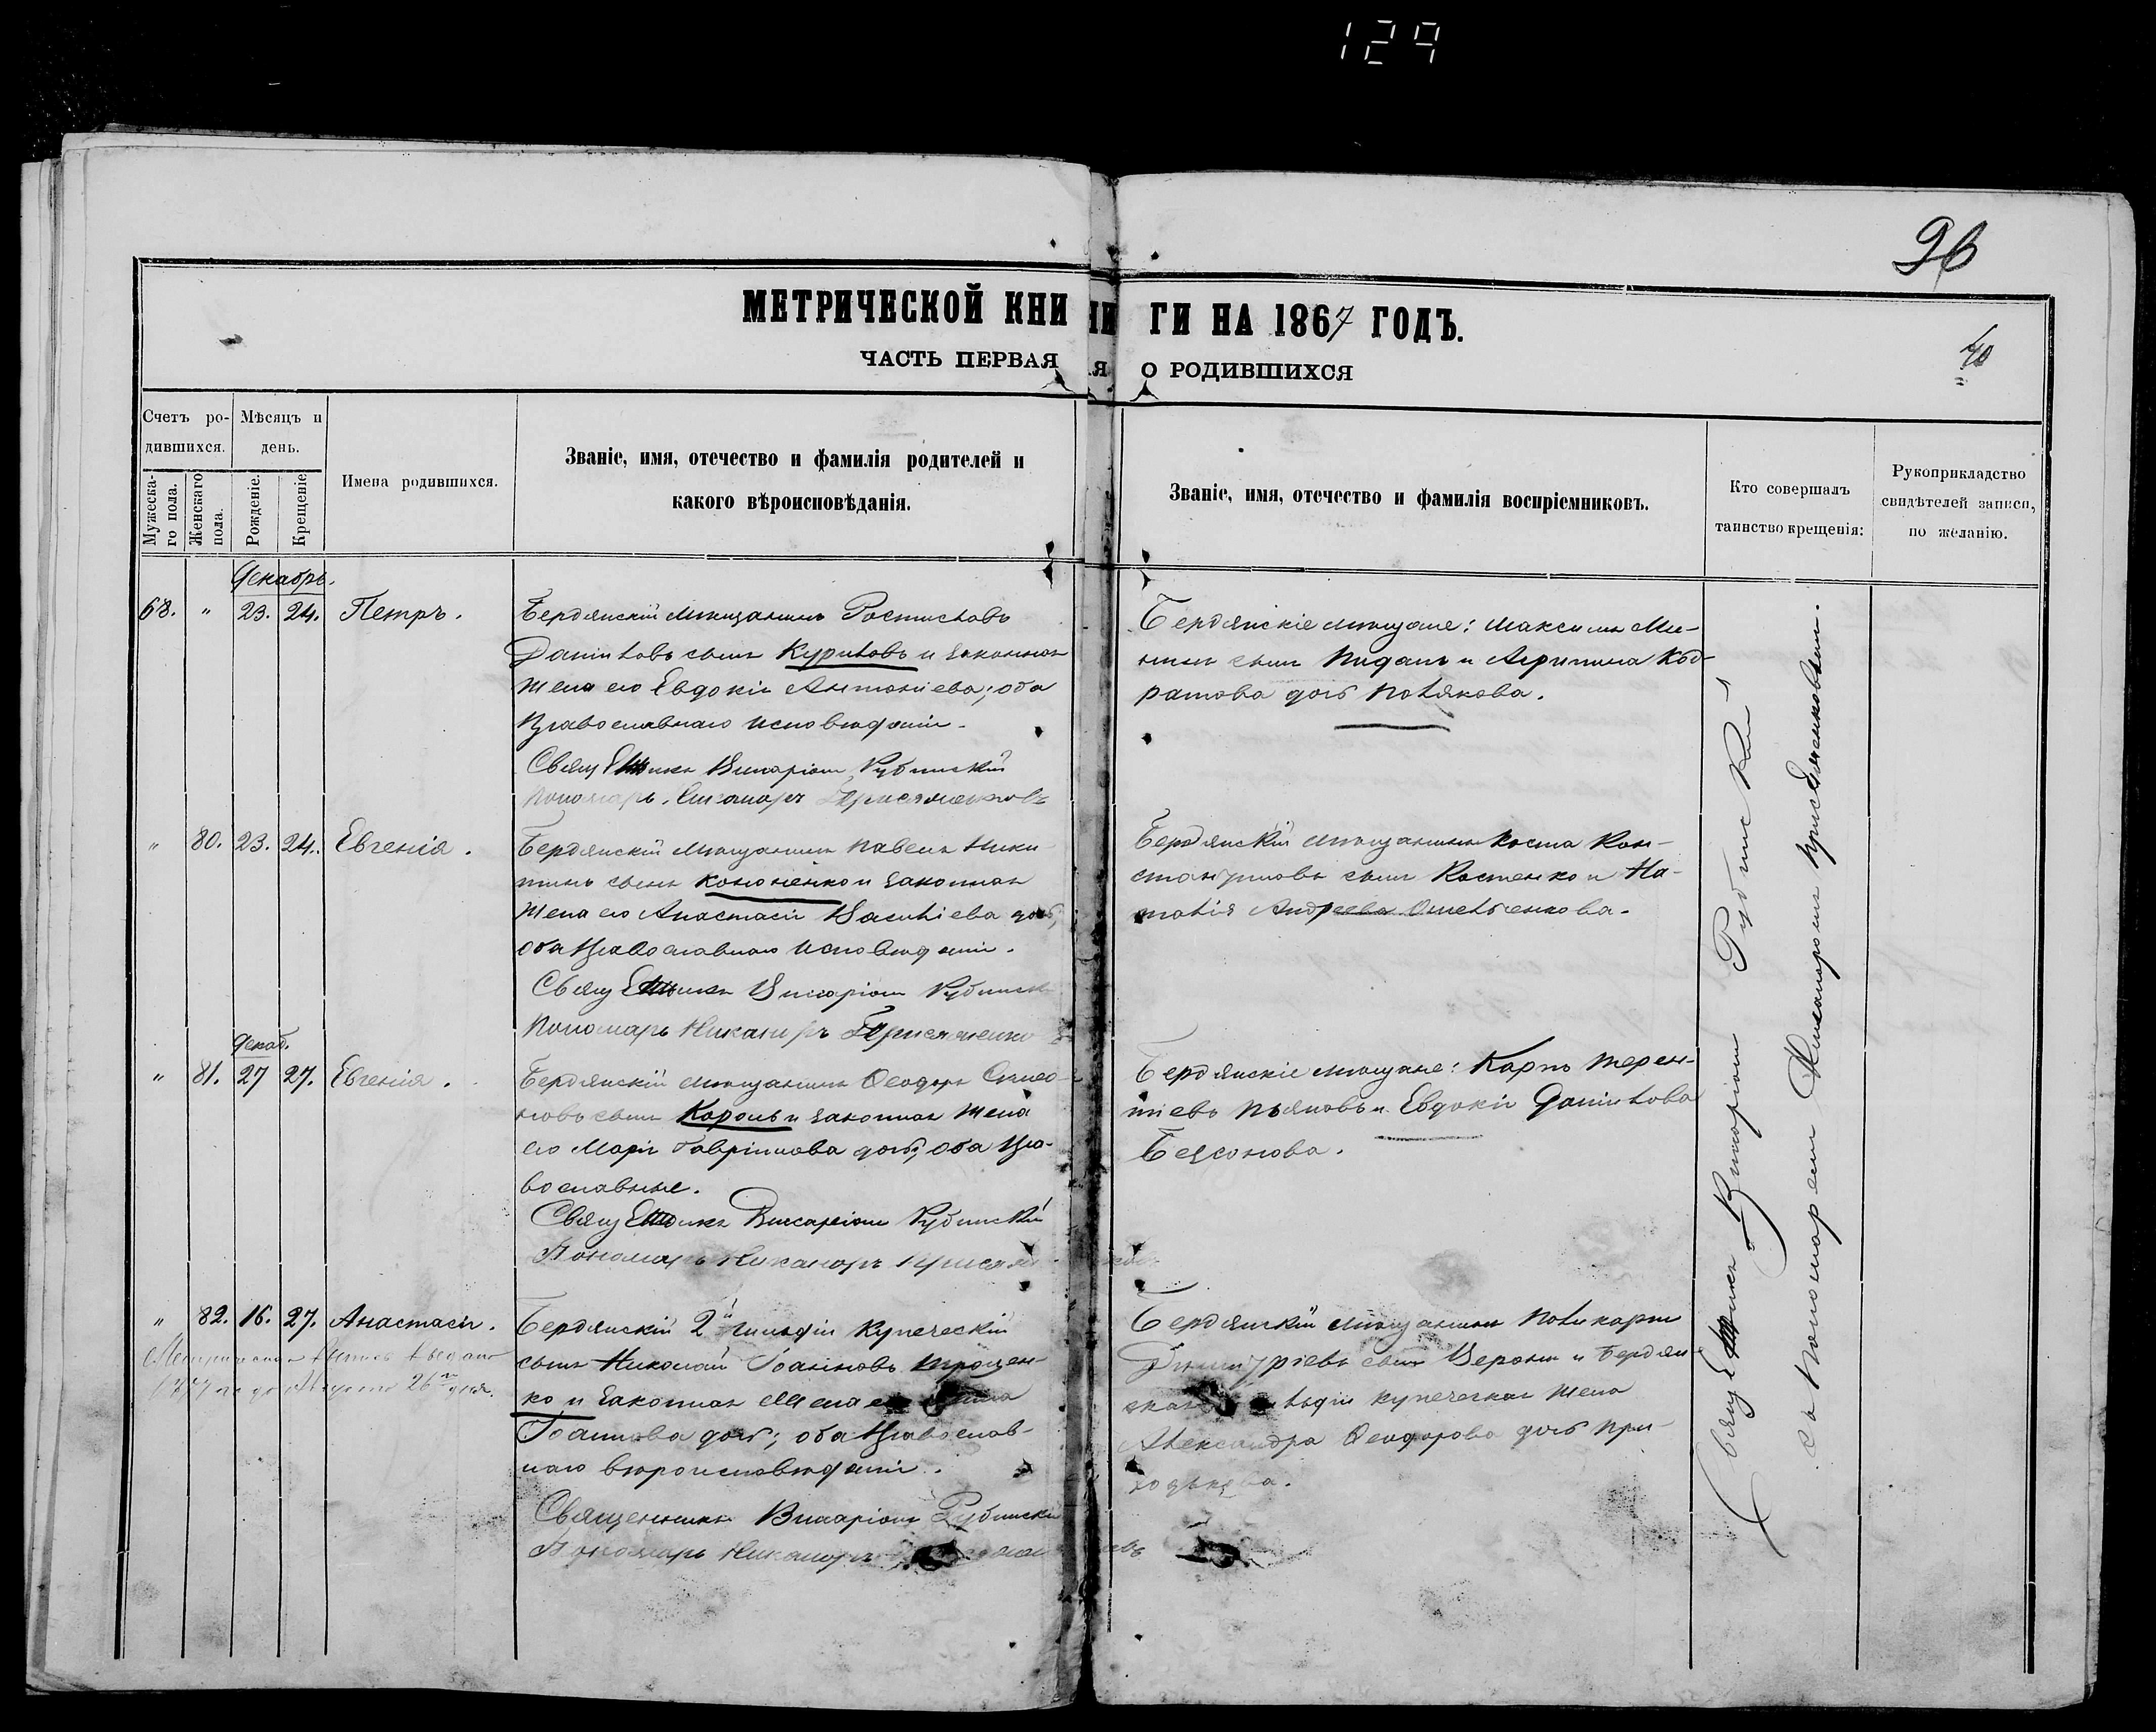 129
96
МЕТРИЧЕСКОЙ КНИ ГИ НА 1867 ГОДЪ.
40
ЧАСТЬ ПЕРВАЯ О РОДИВШИХСЯ
Счетъ ро-
дившихся.
Мѣсяцъ и
день.
Мужеска-
го пола.
Женскаго
пола.
Рожденіе.
Крещеніе
Имена родившихся.
Званіе, имя, отечество и фамилія родителей и
какого вѣроисповѣданія.
Званіе, имя, отечество и фамилія воспріемниковъ.
Кто совершалъ
таинство крещенія:
Рукоприкладство
свидѣтелей записи,
по желанію.
Декабрь.
68. " 23. 24. Петръ.
Бердянскій мѣщанинъ
Даниловъ сынъ Куриловъ и законная
жена его Евдокія Антоніева; оба
православнаго исповѣданія.
Священникъ Виссаріонъ Рубинскій
Пономарь Никаноръ
Бердянскіе мѣщане: Максимъ
сынъ и Агрипина Код-
ратова дочь Полякова.
" 80. 23. 24. Евгенія.
Бердянскій мѣщанинъ Павелъ Ники-
тинъ сынъ Кононенко и законная
жена его Анастасія Василіева дочь,
оба православнаго исповѣданія.
Священникъ Виссаріонъ Рубинск
Пономарь Никаноръ
Бердянскій мѣщанинъ Косма Кон-
стантиновъ сынъ Костенко и На-
талія Андреева Омельченкова.
Декаб.
" 81. 27 27. Евгенія.
Бердянскій мѣщанинъ Ѳеодоръ Симео-
новъ сынъ Король и законная жена
его Марія Гавріилова дочь; оба пра-
вославные.
Священникъ Виссаріонъ Рубинскій
Пономарь Никаноръ
Бердянскіе мѣщане: Карпъ Терен-
тіевъ Пьяновъ и Евдокія Данилова
Безсонова.
" 82. 16. 27. Анастасія.
26 дня.
Бердянскій 2й гильдіи купеческій
сынъ Николай Іоанновъ Трощен-
ко и законная жена его
Іоаннова дочь; оба православ-
наго вѣроисповѣданія.
Священникъ Виссаріонъ Рубинскі
Пономарь Никаноръ
Бердянскій мѣщанинъ Поликарпъ
Димитріевъ сынъ и Бердян
купеческая жена
Александра Ѳеодорова дочь При-
ходькова.
Священникъ Виссаріонъ Рубинскій
съ Пономаремъ Никаноромъ